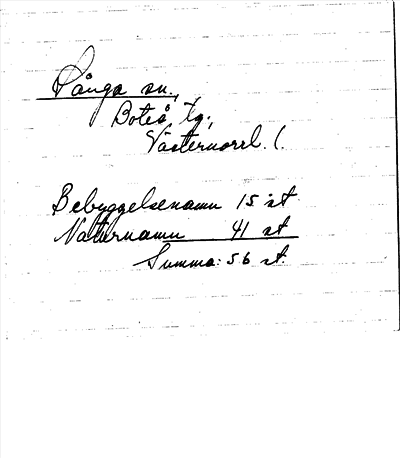 Sånga sn.,
Boteå tg.,
Västernorrl. l.
Bebyggelsenamn 15 st
Naturnamn 41 st
Summa: 56 st.